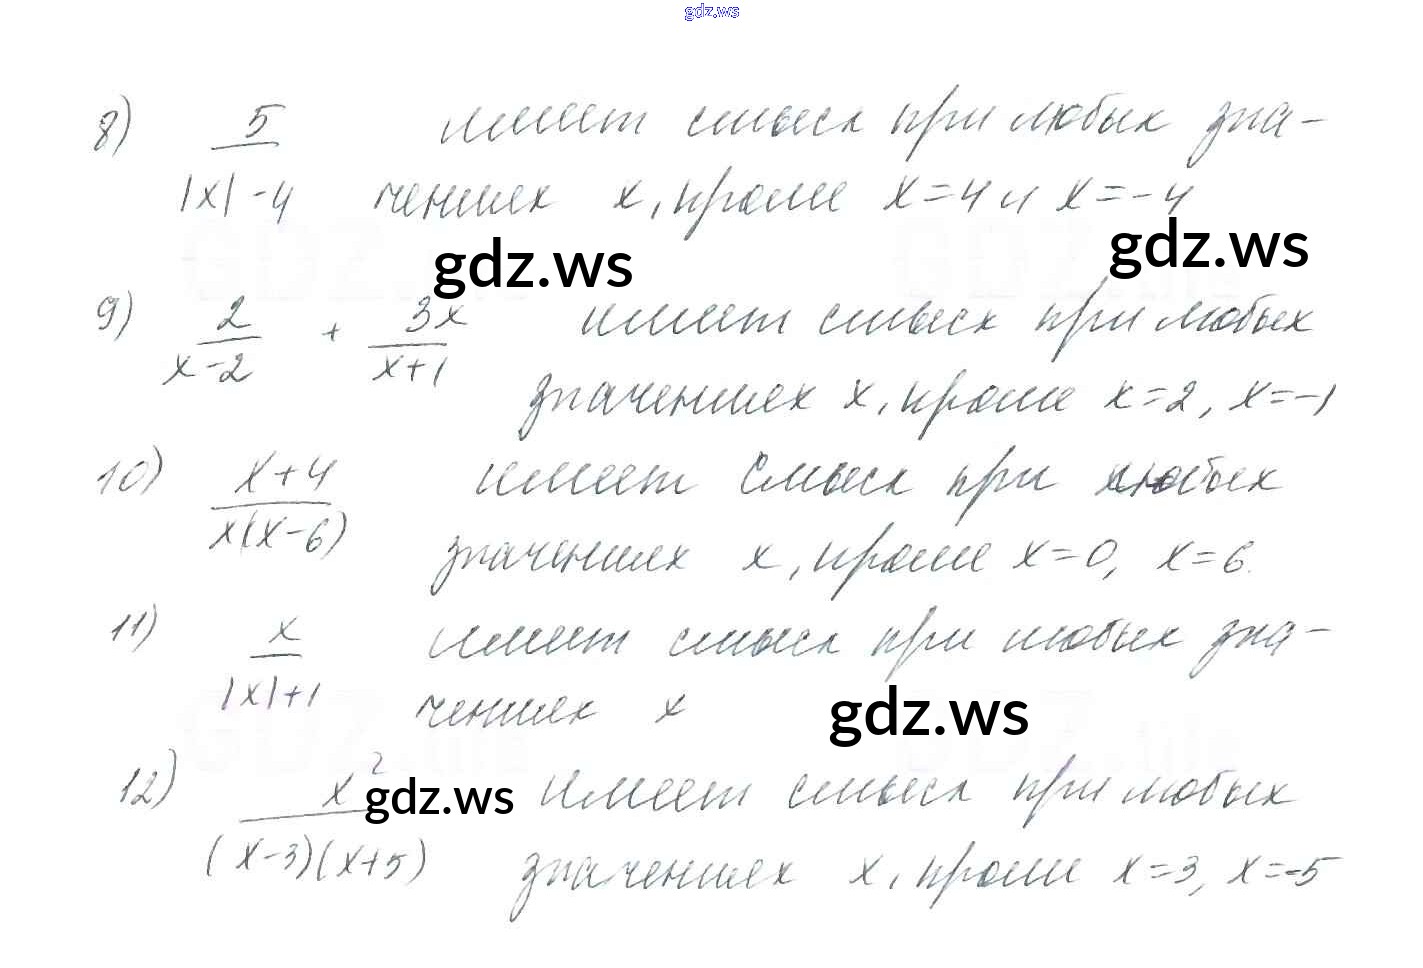 gdz.ws
8) 5 / (|x| - 4) имеет смысл при любых зна-
чениях x, кроме x = 4 и x = -4
gdz.ws gdz.ws
9) 2 / (x - 2) + 3x / (x + 1) имеет смысл при любых
значениях x, кроме x = 2, x = -1
10) (x + 4) / (x(x - 6)) имеет смысл при любых
значениях x, кроме x = 0, x = 6.
11) x / (|x| + 1) имеет смысл при любых зна-
чениях x
gdz.ws
12) x² / ((x - 3)(x + 5)) имеет смысл при любых
gdz.ws
значениях x, кроме x = 3, x = -5